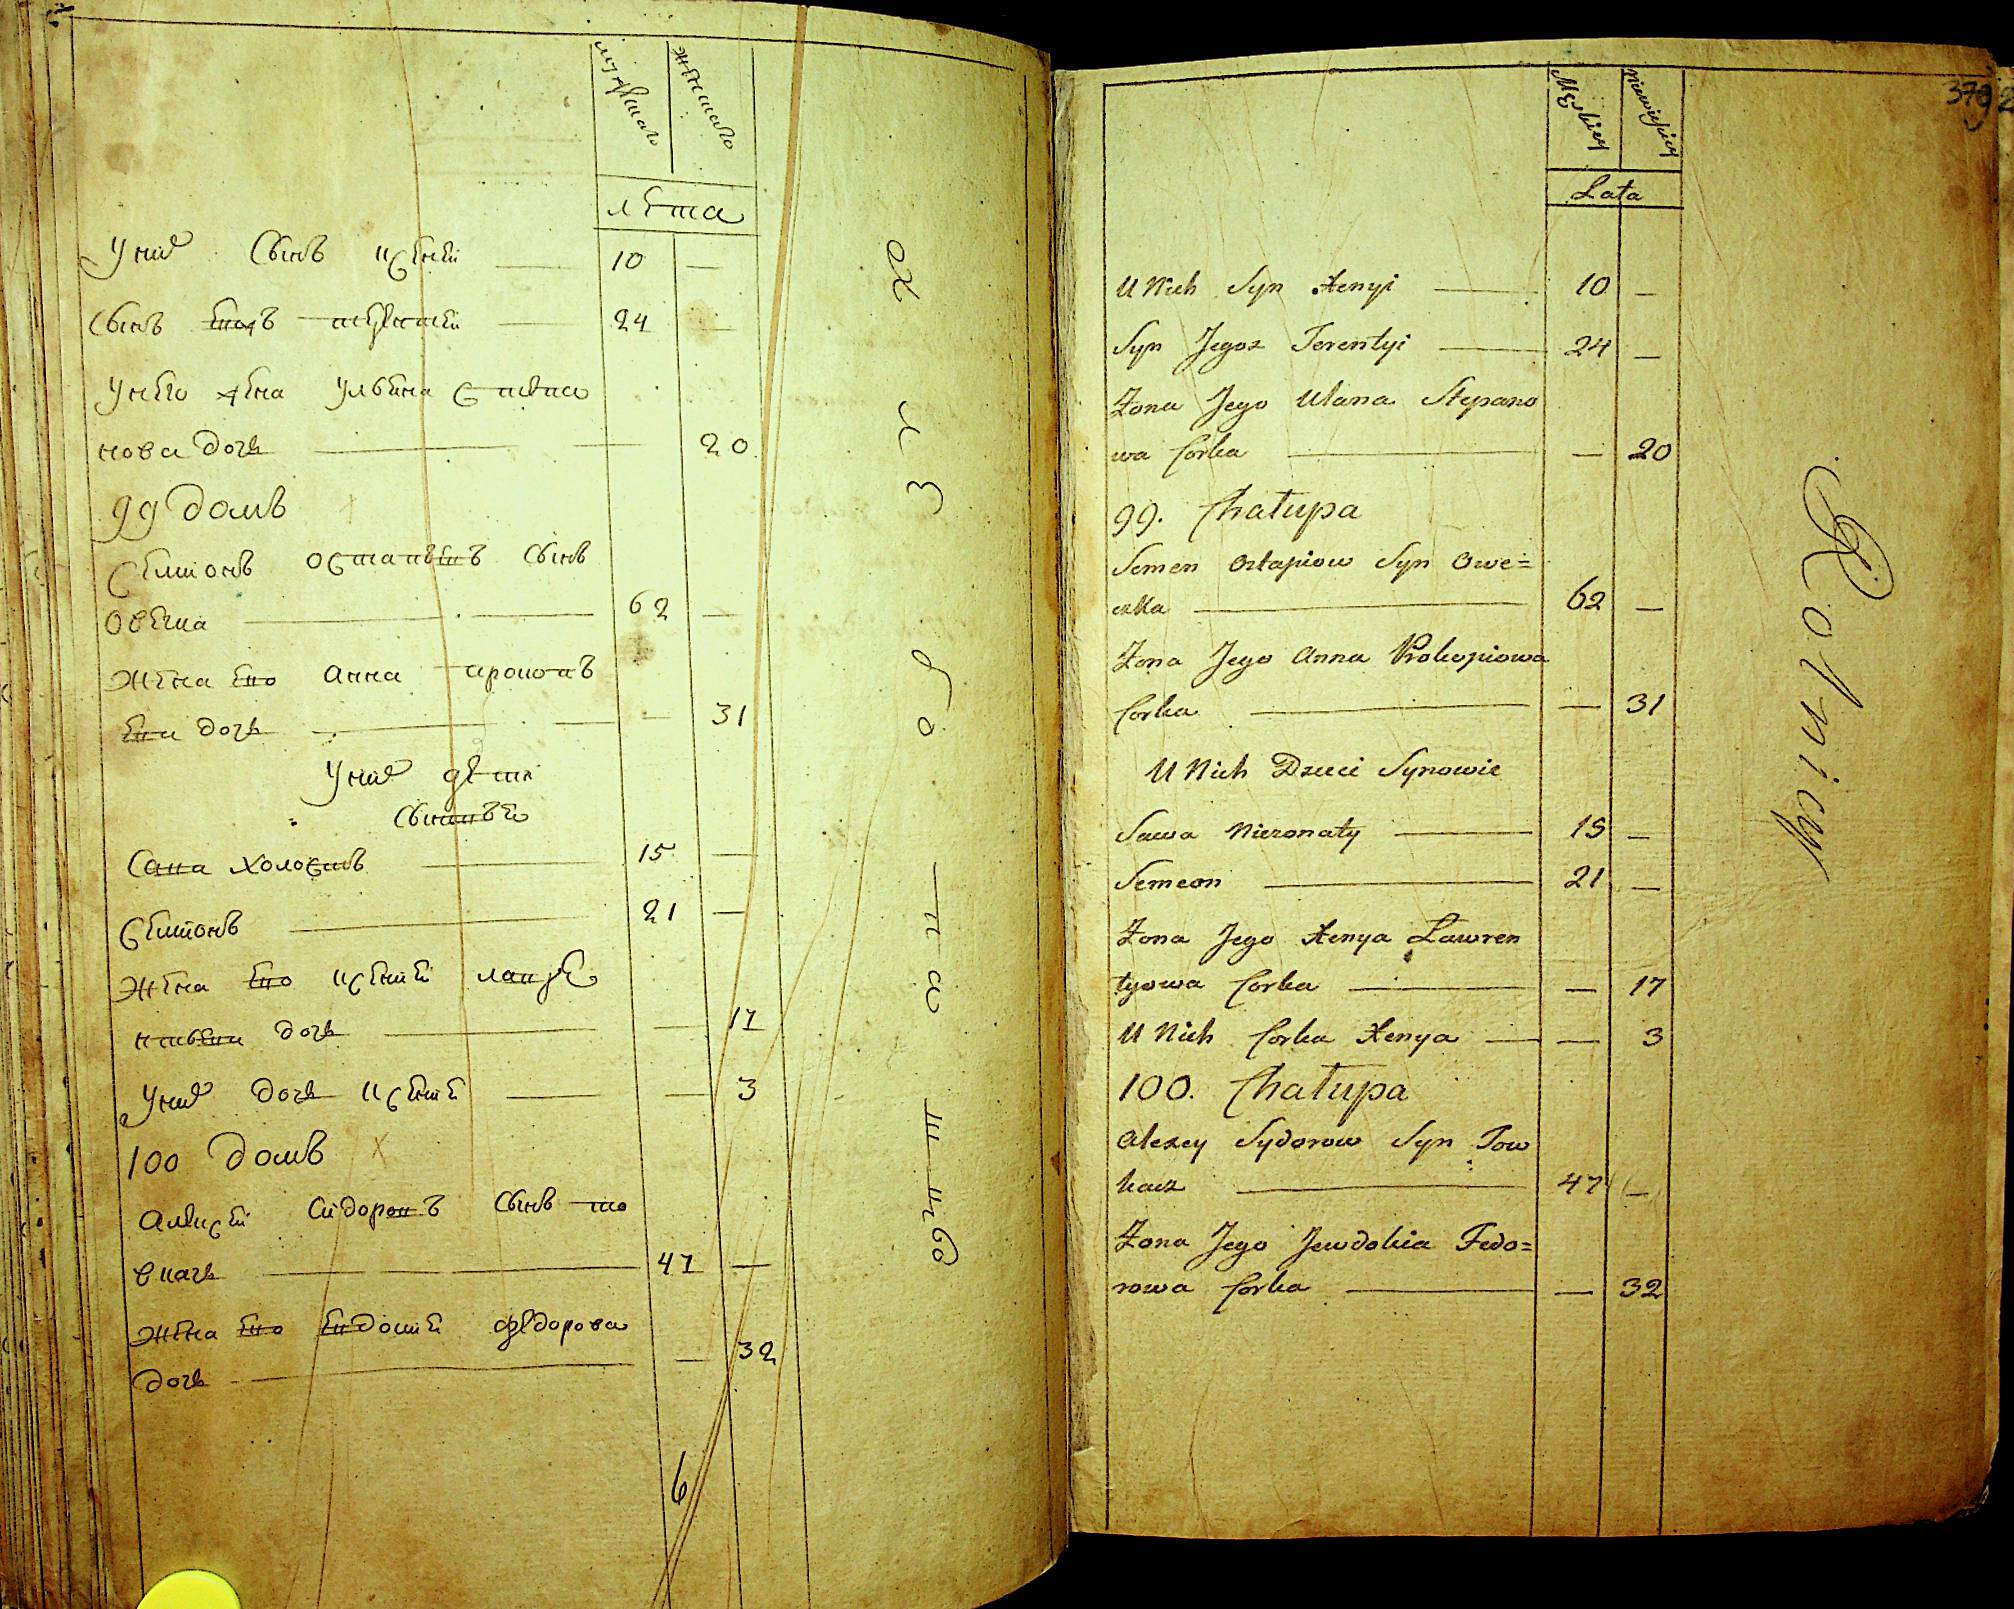 мужеска
женска
лѣта
У них Сынъ Ксеній — 10 —
Сынъ еговъ терентей — 24 —
У него жена Ульяна Степа
нова дочь — 20
99 домъ
Семіонъ остапіевъ Сынъ
Овечка — 62 —
Жена его Анна прокопъ
ева дочь — 31
У них дѣти
Сыновѣ
Сава холостъ — 15 —
Семіонъ — 21 —
Жена его Ксенія лавре
нтьева дочь — 17
У них дочь Ксенія — 3
100 домъ
Алексей Сидоровъ Сынъ то
вкачь — 47 —
Жена его Евдокія федорова
дочь — 32
6
379
Męskiey
Niewieskiey
Lata
U Nich Syn Xenyi — 10 —
Syn Jegoz Terentyi — 24 —
Żona Jego Ulana Stepano
wa Corka — 20
99. Chałupa
Semen Ostapiow Syn Owe=
czka — 62 —
Żona Jego Anna Prokopiowa
Corka — 31
U Nich Dzieci Synowie
Sawa Nieżonaty — 15 —
Semeon — 21 —
Żona Jego Xenya Lawren
tyowa Corka — 17
U Nich Corka Xenya — 3
100. Chałupa
Alexey Sydorow Syn Tow
kacz — 47 —
Żona Jego Jewdokia Fedo=
rowa Corka — 32
Rolnicy